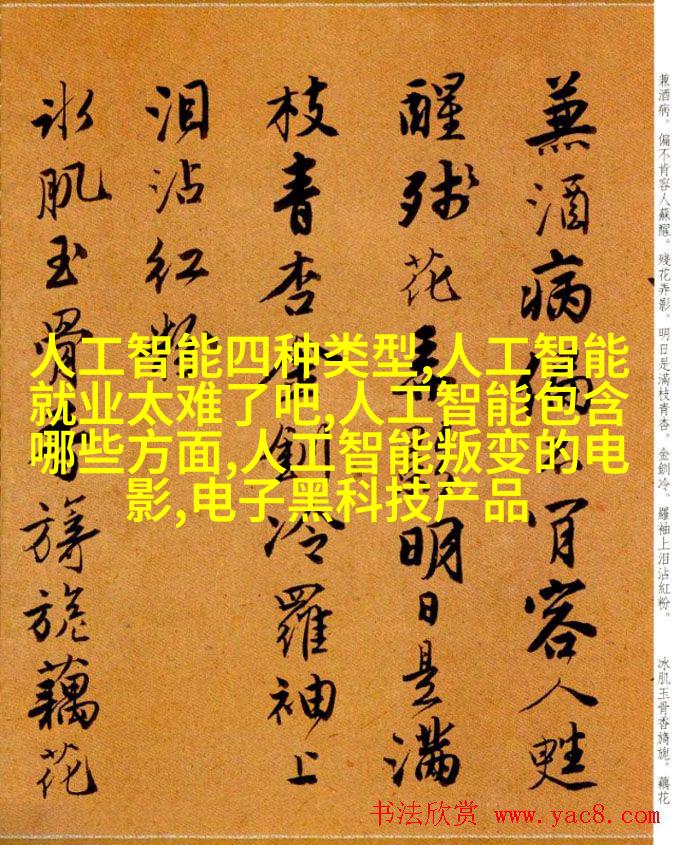 兼酒病偏不肯容人甦
醒殘花弄影明日是滿
枝青杏金釧冷羅袖上
泪沾红粉
冰肌玉骨香旖旎藕花
人工智能四种类型,人工智能
就业太难了吧,人工智能包含
哪些方面,人工智能叛变的电
影,电子黑科技产品
兼酒病。偏不肯容人蘇醒。殘花弄影。明日是滿枝青杏。金釧冷。羅袖上泪沾紅粉。
冰肌玉骨香旖旎。藕花
书法欣赏 www.yac8.com